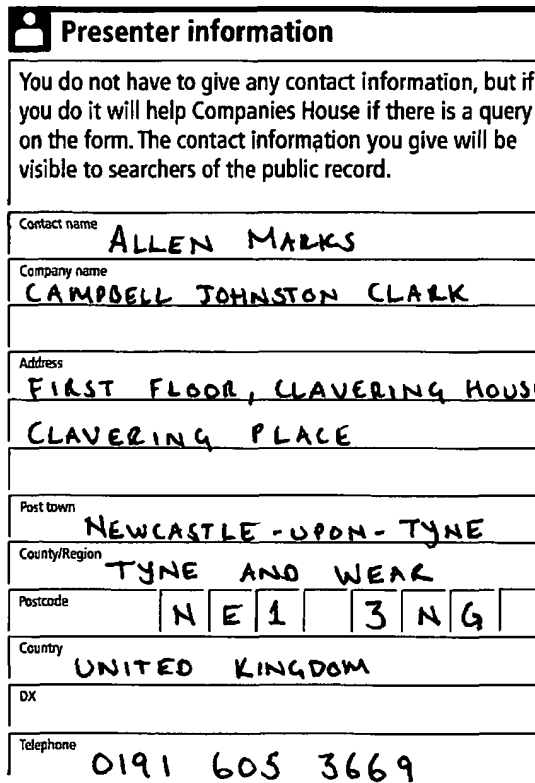 Presenter information
You do not have to give any contact information, but if
you do it will help Companies House if there is a query
on the form. The contact information you give will be
visible to searchers of the public record.
Contact name
ALLEN MARKS
Company name
CAMPBELL JOHNSTON CLARK
Address
FIRST FLOOR, CLAVERING HOUSE
CLAVERING PLACE
Post town
NEWCASTLE-UPON-TYNE
County/Region
TYNE AND WEAR
Postcode
NE1 3NG
Country
UNITED KINGDOM
DX
Telephone
0191 605 3669